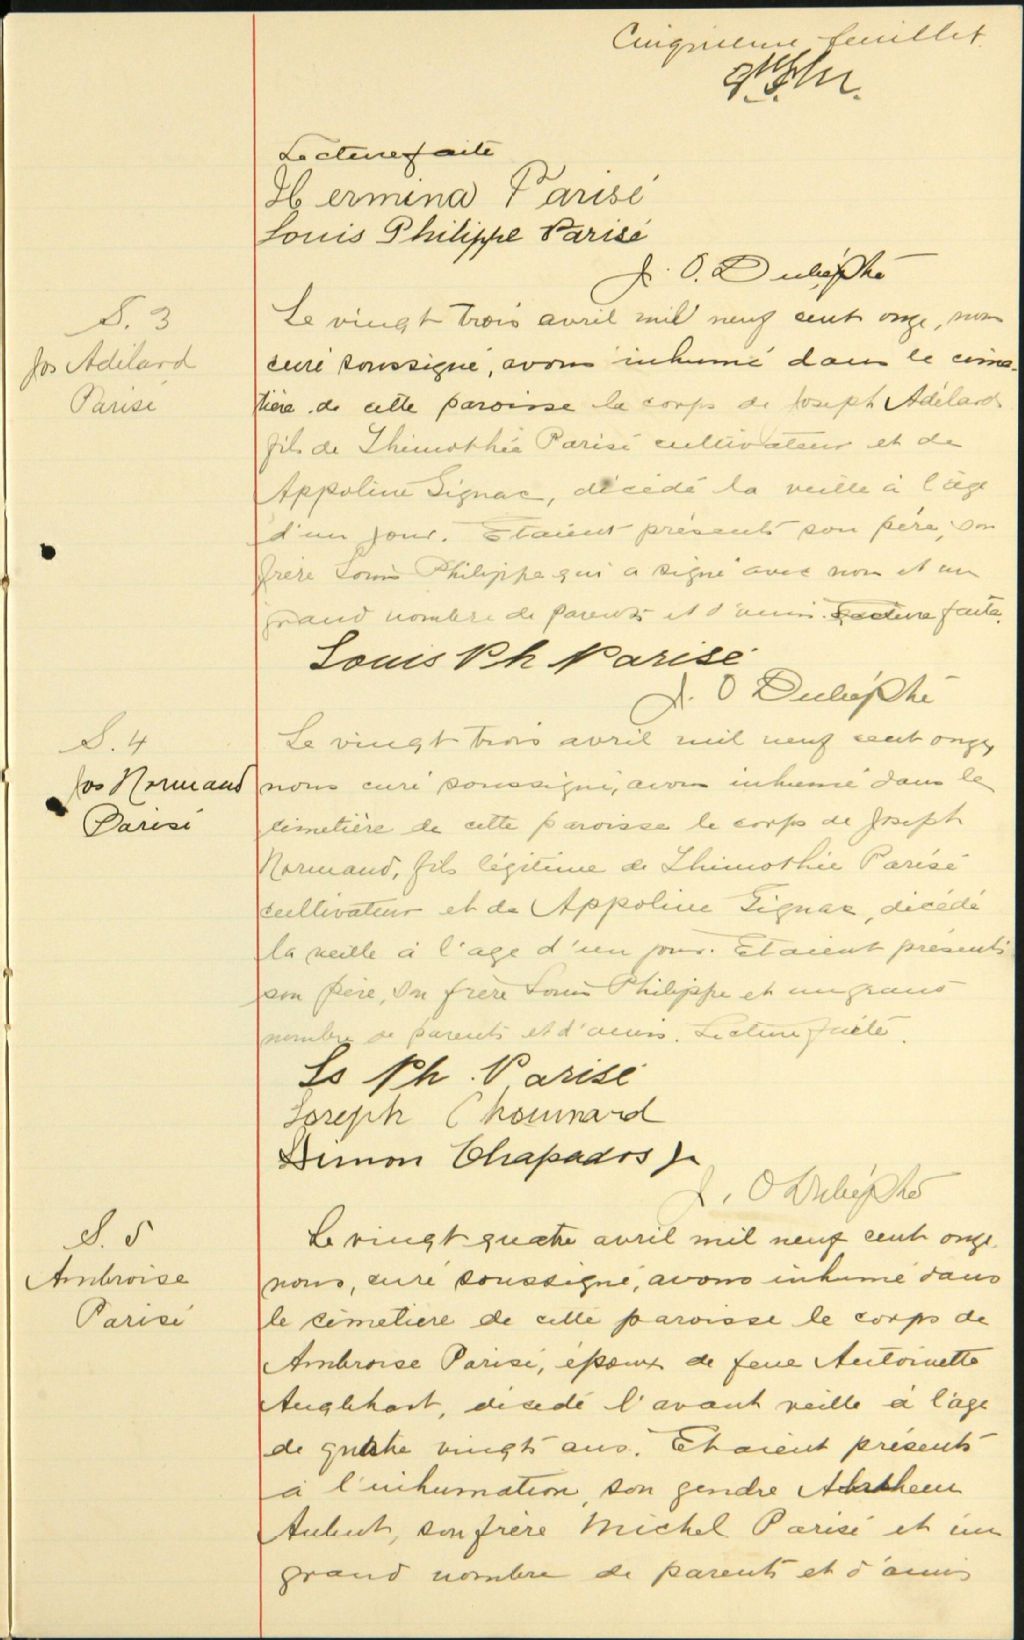 Cinquieme feuillet.
Lecture faite
Hermina Parisé
Louis Philippe Parisé
J. O. Dubé Ptre
S. 3
Jos Adélard
Parisé
Le vingt trois avril mil neuf cent onze, nous
curé soussigné, avons inhumé dans le cime-
tière de cette paroisse le corps de Joseph Adélard
fils de Thimothée Parisé cultivateur et de
Appoline Gignac, décédé la veille à l'âge
d'un jour. Etaient présents son père, son
frère Louis Philippe qui a signé avec nous et un
grand nombre de parents et d'amis. Lecture faite.
Louis Ph Parisé
J. O Dubé Ptre
S. 4
Jos Normand
Parisé
Le vingt trois avril mil neuf cent onze,
nous curé soussigné, avons inhumé dans le
cimetière de cette paroisse le corps de Joseph
Normand, fils légitime de Thimothée Parisé
cultivateur et de Appoline Gignac, décédé
la veille à l'age d'un jour. Etaient présents
son père, son frère Louis Philippe et un grand
nombre de parents et d'amis. Lecture faite.
Ls Ph. Parisé
Joseph Chouinard
Simon Chapados Jr
J. O Dubé Ptre
S. 5
Ambroise
Parisé
Le vingt quatre avril mil neuf cent onze
nous, curé soussigné, avons inhumé dans
le cimetiere de cette paroisse le corps de
Ambroise Parisé, époux de feue Antoinette
Anglehart, décedé l'avant veille à l'âge
de quatre vingts ans. Etaient présents
à l'inhumation, son gendre
Aubut, son frère Michel Parisé et un
grand nombre de parents et d'amis